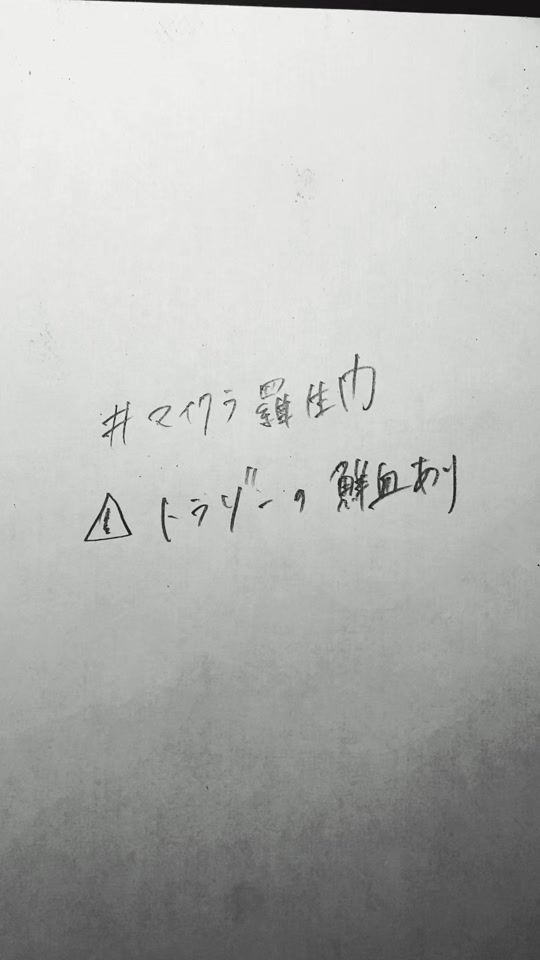 #マイクラ羅生門
⚠トラゾーの鮮血あり